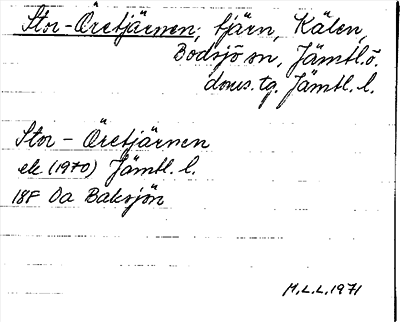 Stor-Öretjärnen, tjärn, Kälen,
Bodsjö sn, Jämtl.ö.
doms.tg. Jämtl. l.
Stor - Öretjärnen
ek (1970) Jämtl. l.
18F 0a Baksjön
M.L.L. 1971